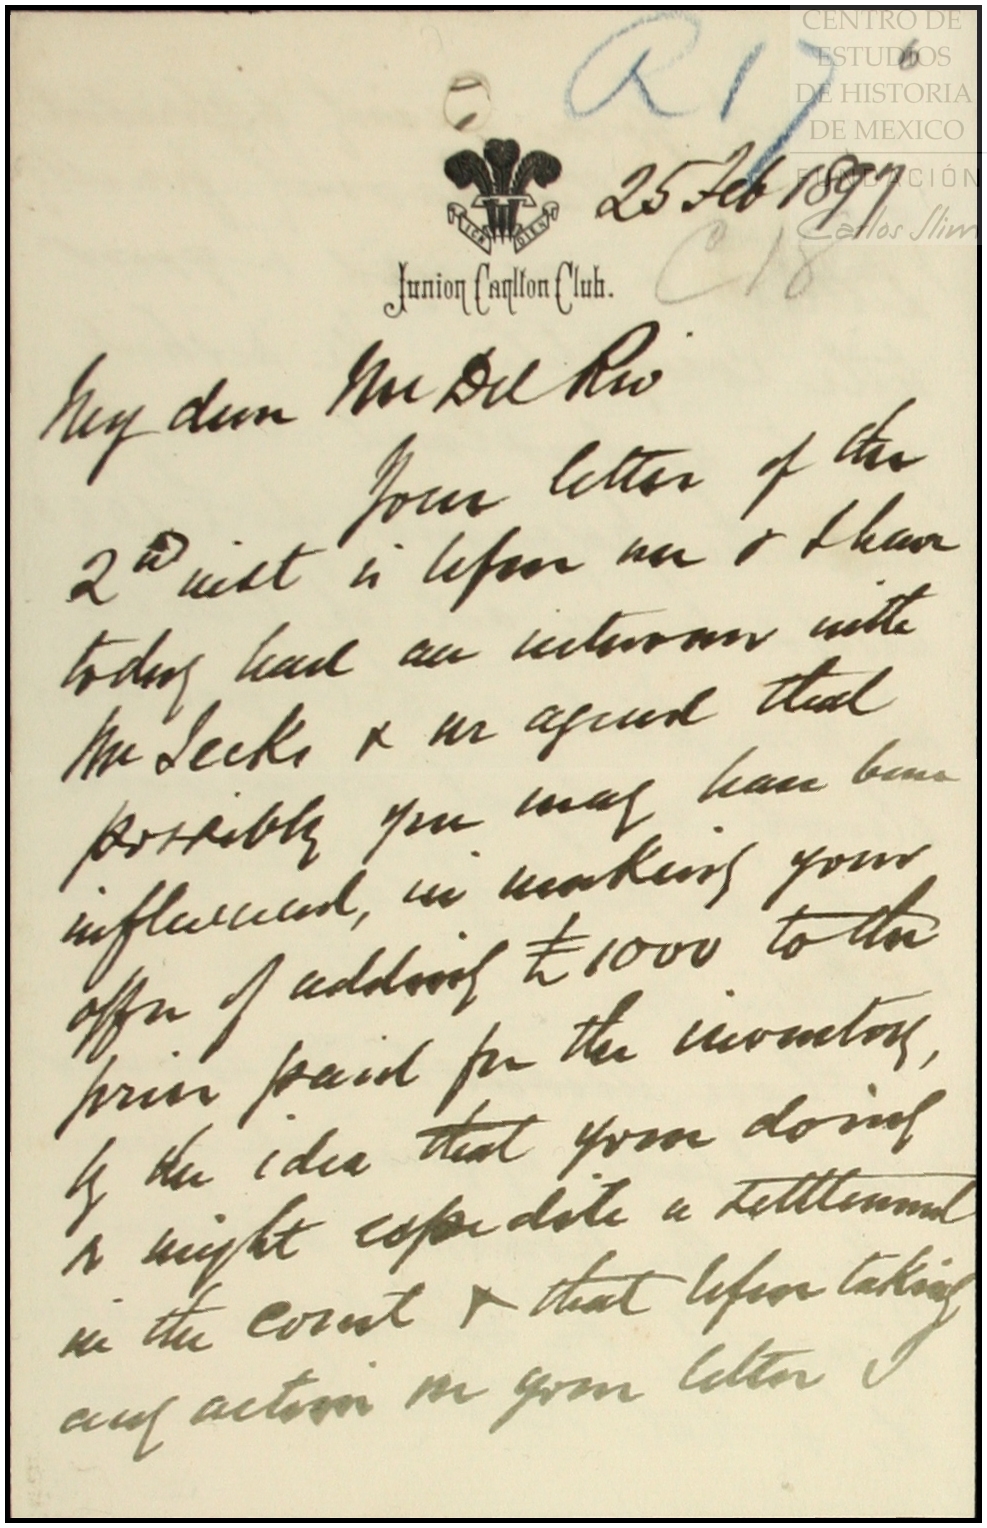 CENTRO DE
ESTUDIOS
DE HISTORIA
DE MEXICO
FUNDACIÓN
Carlos Slim
R 17
6
25 Feb 1897
C 18
ICH DIEN
Junior Carlton Club.
My dear Mr Del Rio
Your letter of the
2nd inst is before me & I have
today had an interview with
Mr Jecks & we agreed that
possibly you may have been
influenced, in making your
offer of adding £1000 to the
price paid for the inventory,
by the idea that your doing
so might expedite a settlement
in the court & that before taking
any action on your letter I